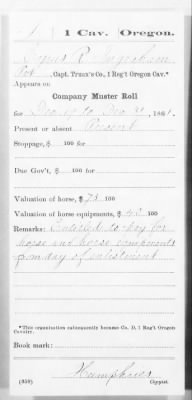 1 Cav. Oregon.
Cyrus R. Ingraham
Pvt, Capt. Truax's Co., 1 Reg't Oregon Cav.*
Appears on
Company Muster Roll
for Dec 19 to Dec 31, 1861.
Present or absent Present
Stoppage, $ 100 for
Due Gov't, $ 100 for
Valuation of horse, $ 75 100
Valuation of horse equipments, $ 100
Remarks: Entitled to pay for
horse and horse equipments
from day of enlistment
*This organization subsequently became Co. D, 1 Reg't Oregon
Cavalry.
Book mark:
Humphries
(358) Copyist.